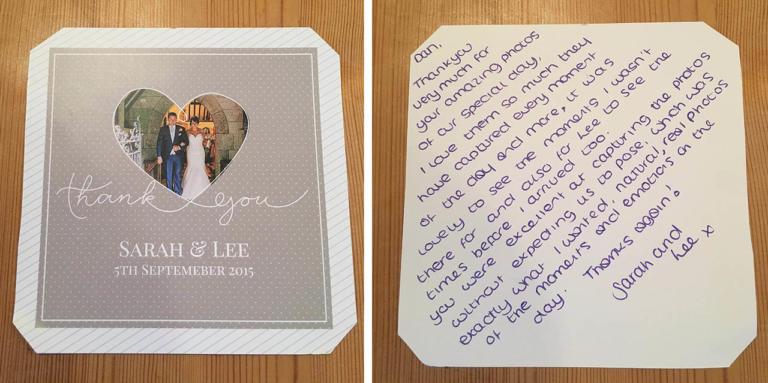 thank you
SARAH & LEE
5TH SEPTEMEBER 2015
Dan,
Thankyou
very much for
your amazing photos
of our special day,
I love them so much they
have captured every moment
of the day and more, it was
lovely to see the moments I wasn't
there for and also for Lee to see the
times before I arrived too.
you were excellent at capturing the photos
without expecting us to pose, which was
exactly what I wanted, natural, real photos
of the moments and emotions on the
day. Thanks again!
Sarah and
Lee x